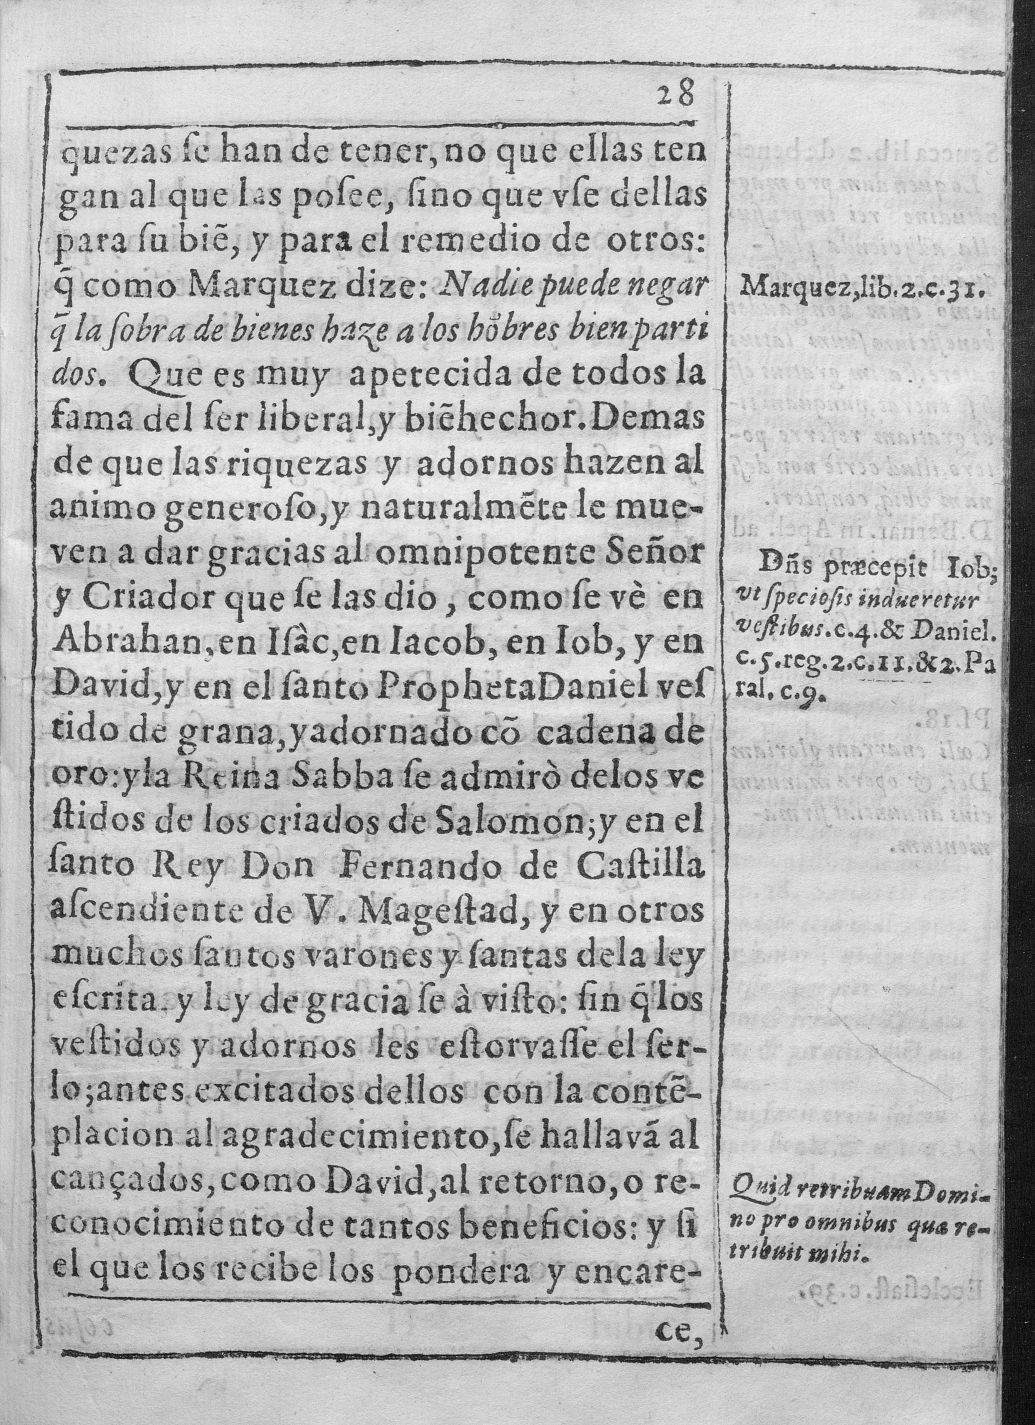 28
q̃uezas ſe han de tener, no que ellas ten
gan al que las poſee, ſino que vſe dellas
para ſu biẽ, y para el remedio de otros:
q̃ como Marquez dize: Nadie puede negar
q̃ la ſobra de bienes haze a los hõbres bien parti
dos. Que es muy apetecida de todos la
fama del ſer liberal, y biẽhechor. Demas
de que las riquezas y adornos hazen al
animo generoſo, y naturalmẽte le mue-
ven a dar gracias al omnipotente Señor
y Criador que ſe las dio, como ſe vè en
Abrahan, en Iſàc, en Iacob, en Iob, y en
David, y en el ſanto Propheta Daniel veſ
tido de grana, y adornado cõ cadena de
oro: y la Reina Sabba ſe admirò de los ve
ſtidos de los criados de Salomon; y en el
ſanto Rey Don Fernando de Caſtilla
aſcendiente de V. Mageſtad, y en otros
muchos ſantos varones y ſantas de la ley
eſcrita. y ley de gracia ſe à viſto: ſin q̃ los
veſtidos y adornos les eſtorvaſſe el ſer-
lo; antes excitados dellos con la contẽ-
placion al agradecimiento, ſe hallavã al
cançados, como David, al retorno, o re-
conocimiento de tantos beneficios: y ſi
el que los recibe los pondera y encare-
ce,
Marquez, lib. 2. c. 31.
Dñs præcepit Iob;
vt ſpecioſis indueretur
veſtibus. c. 4. & Daniel.
c. 5. reg. 2. c. 11. & 2. Pa
ral. c. 9.
Quid retribuam Domi-
no pro omnibus quæ re-
tribuit mihi.